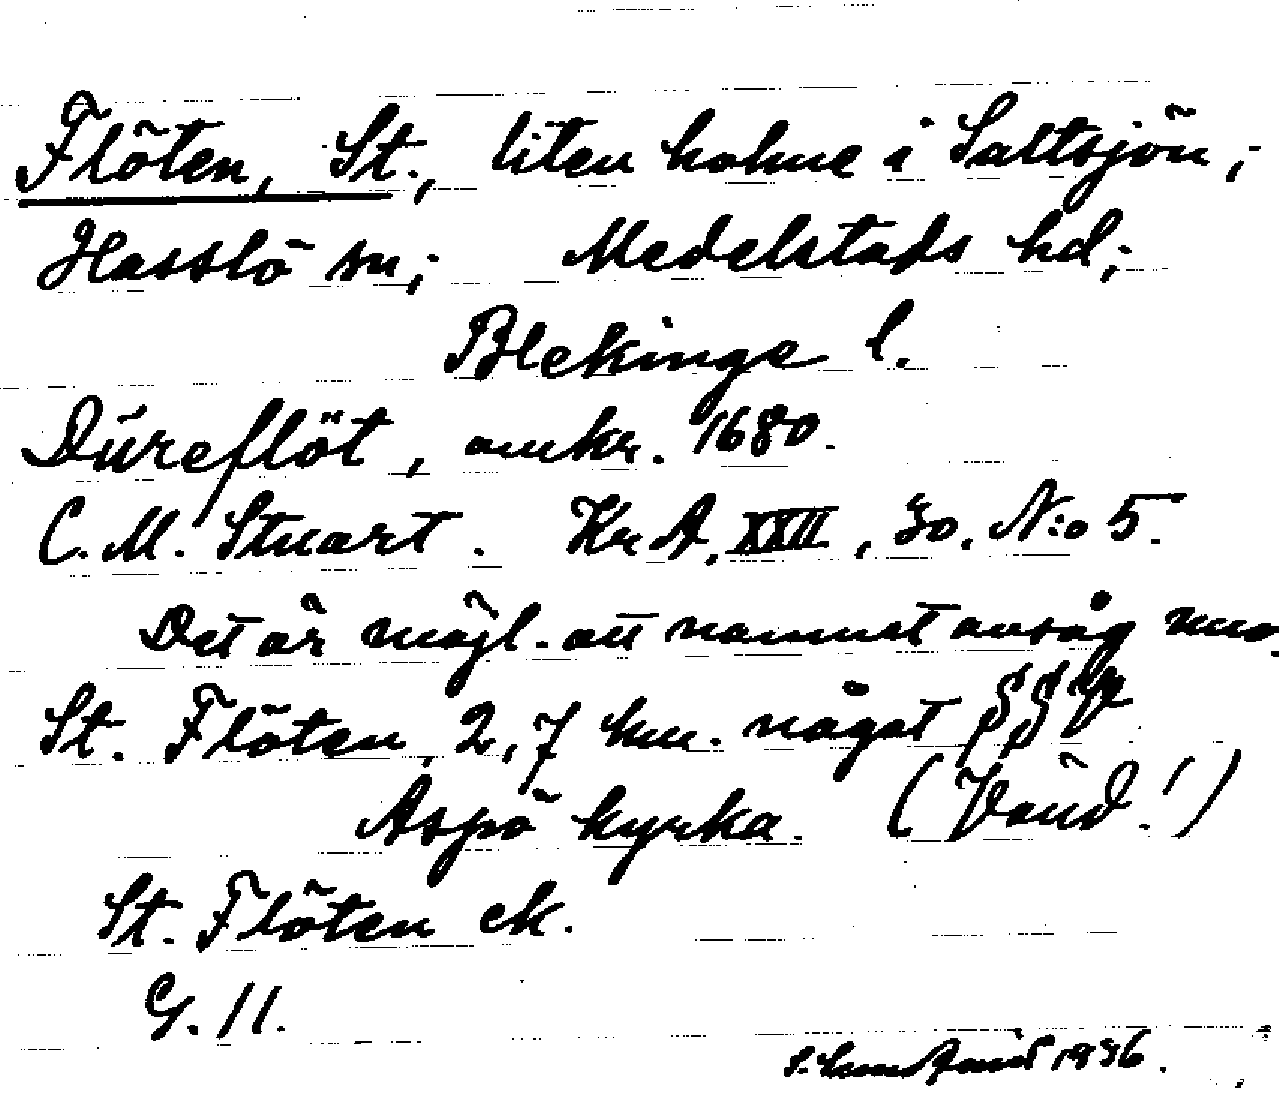 Flöten, St., liten holme i Saltsjön;
Hasslö sn; Medelstads hd;
Blekinge l.
Düreflöt, omkr. 1680.
C. M. Stuart. Kr A. XXII, 30. N:o 5.
Det är möjl. att namnet avsåg nuv.
St. Flöten, 2,7 km. något SSV
Aspö kyrka. (Vänd!)
St. Flöten ek.
G. 11.
1936.